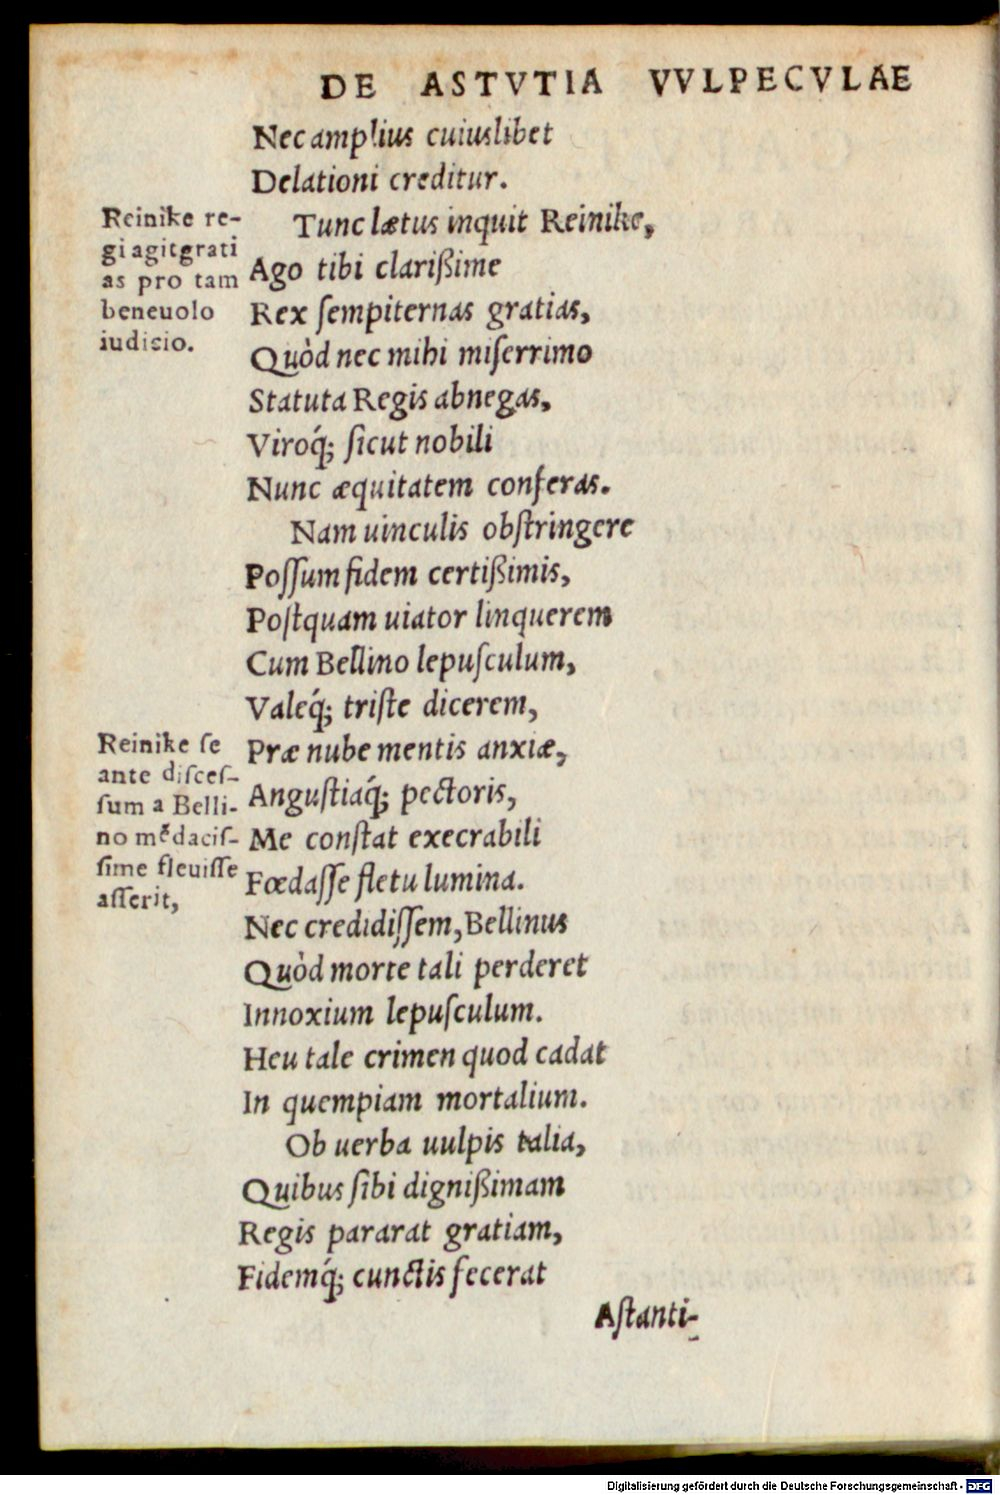 DE ASTVTIA VVLPECVLAE
Nec amplius cuiuslibet
Delationi creditur.
Tunc lætus inquit Reinike,
Ago tibi clarißime
Rex ſempiternas gratias,
Quòd nec mihi miſerrimo
Statuta Regis abnegas,
Viroq́; ſicut nobili
Nunc æquitatem conferas.
Nam uinculis obſtringere
Poſſum fidem certißimis,
Poſtquam uiator linquerem
Cum Bellino lepuſculum,
Valeq́; triſte dicerem,
Præ nube mentis anxiæ,
Anguſtiaq́; pectoris,
Me conſtat execrabili
Fœdaſſe fletu lumina.
Nec credidiſſem, Bellinus
Quòd morte tali perderet
Innoxium lepuſculum.
Heu tale crimen quod cadat
In quempiam mortalium.
Ob uerba uulpis talia,
Quibus ſibi dignißimam
Regis pararat gratiam,
Fidemq́; cunctis fecerat
Aſtanti-
Reinike re-
gi agit grati
as pro tam
beneuolo
iudicio.
Reinike ſe
ante diſceſ-
ſum a Belli-
no mēdaciſ-
ſime fleuiſſe
aſſerit,
Digitalisierung gefördert durch die Deutsche Forschungsgemeinschaft - DFG